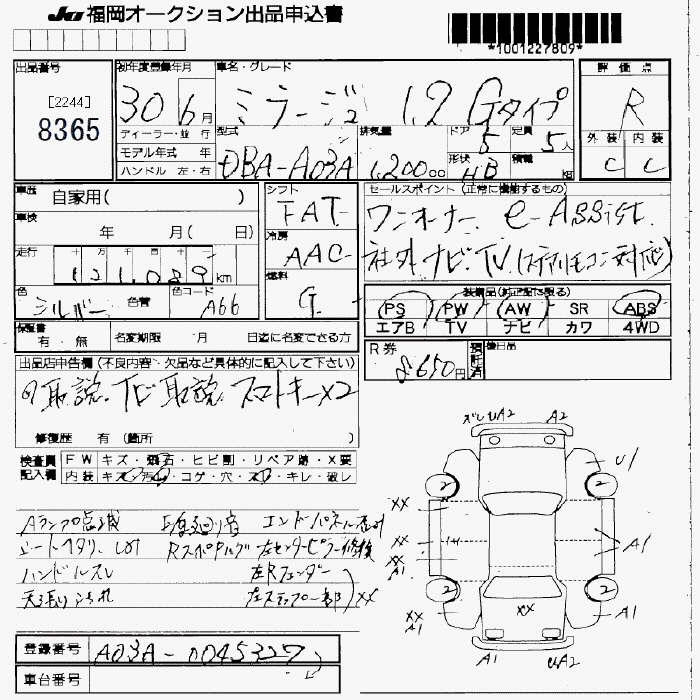 JU 福岡オークション出品申込書
*1001227809*
出品番号
[2244]
8365
初年度登録年月
30 6月
車名・グレード
ミラージュ 1.2 Gタイプ
評価点
R
ディーラー・並行
モデル年式 年
ハンドル 左・右
型式
DBA-A03A
排気量
1,200.00
ドア
5
定員
5人
形状
HB
積載
KG
外装 内装
C C
車歴
自家用( )
車検
年 月( 日)
走行
十万千百十
121,089 km
色
シルバー
色替
色コード
A66
シフト
FAT
冷房
AAC
燃料
G
セールスポイント(正常に機能するもの)
ワンオーナー e-Assist
社外ナビ・TV(ステアリモコン対応)
装備品(純正品に限る)
PS PW AW SR ABS
エアB TV ナビ カワ 4WD
保証書
有・無
名変期限 月 日迄に名変できる方
R券
8,650円
預託済
後日品
出品店申告欄(不良内容・欠品など具体的に記入して下さい)
取説・ナビ取説 スマートキー×2
修復歴 有(箇所 )
検査員
記入欄
FW キズ・飛石・ヒビ割・リペア跡・X要
内装 キズ・汚れ・コゲ・穴・スレ・キレ・破レ
Aランプ点滅
エンドパネル
シートヘタリ
左センターピラー修復
ハンドルスレ
左Rフェンダー
天張り
左ステップ一部
XX
ズレUA2 A2
U1
2 2
XX
XX
A1
XX
A1
A1
2 2
XX
A1
XX
A1
A1
UA2
登録番号
A03A-0045327
車台番号